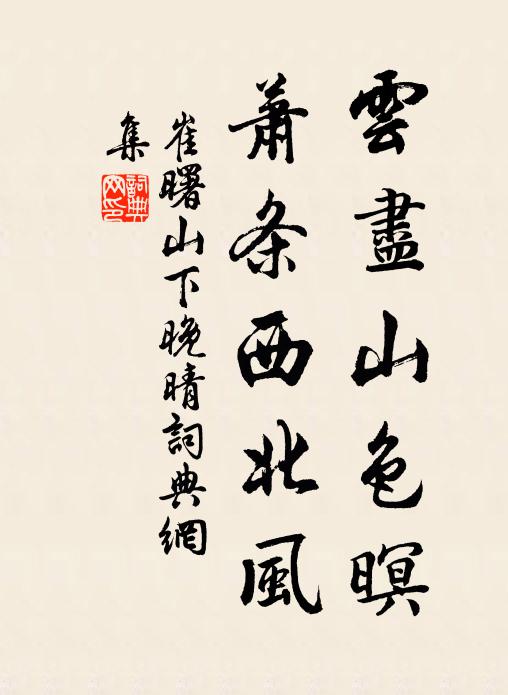 雲盡山色暝
蕭条西北風
崔曙山下晚晴詞典網
集
詞典網印